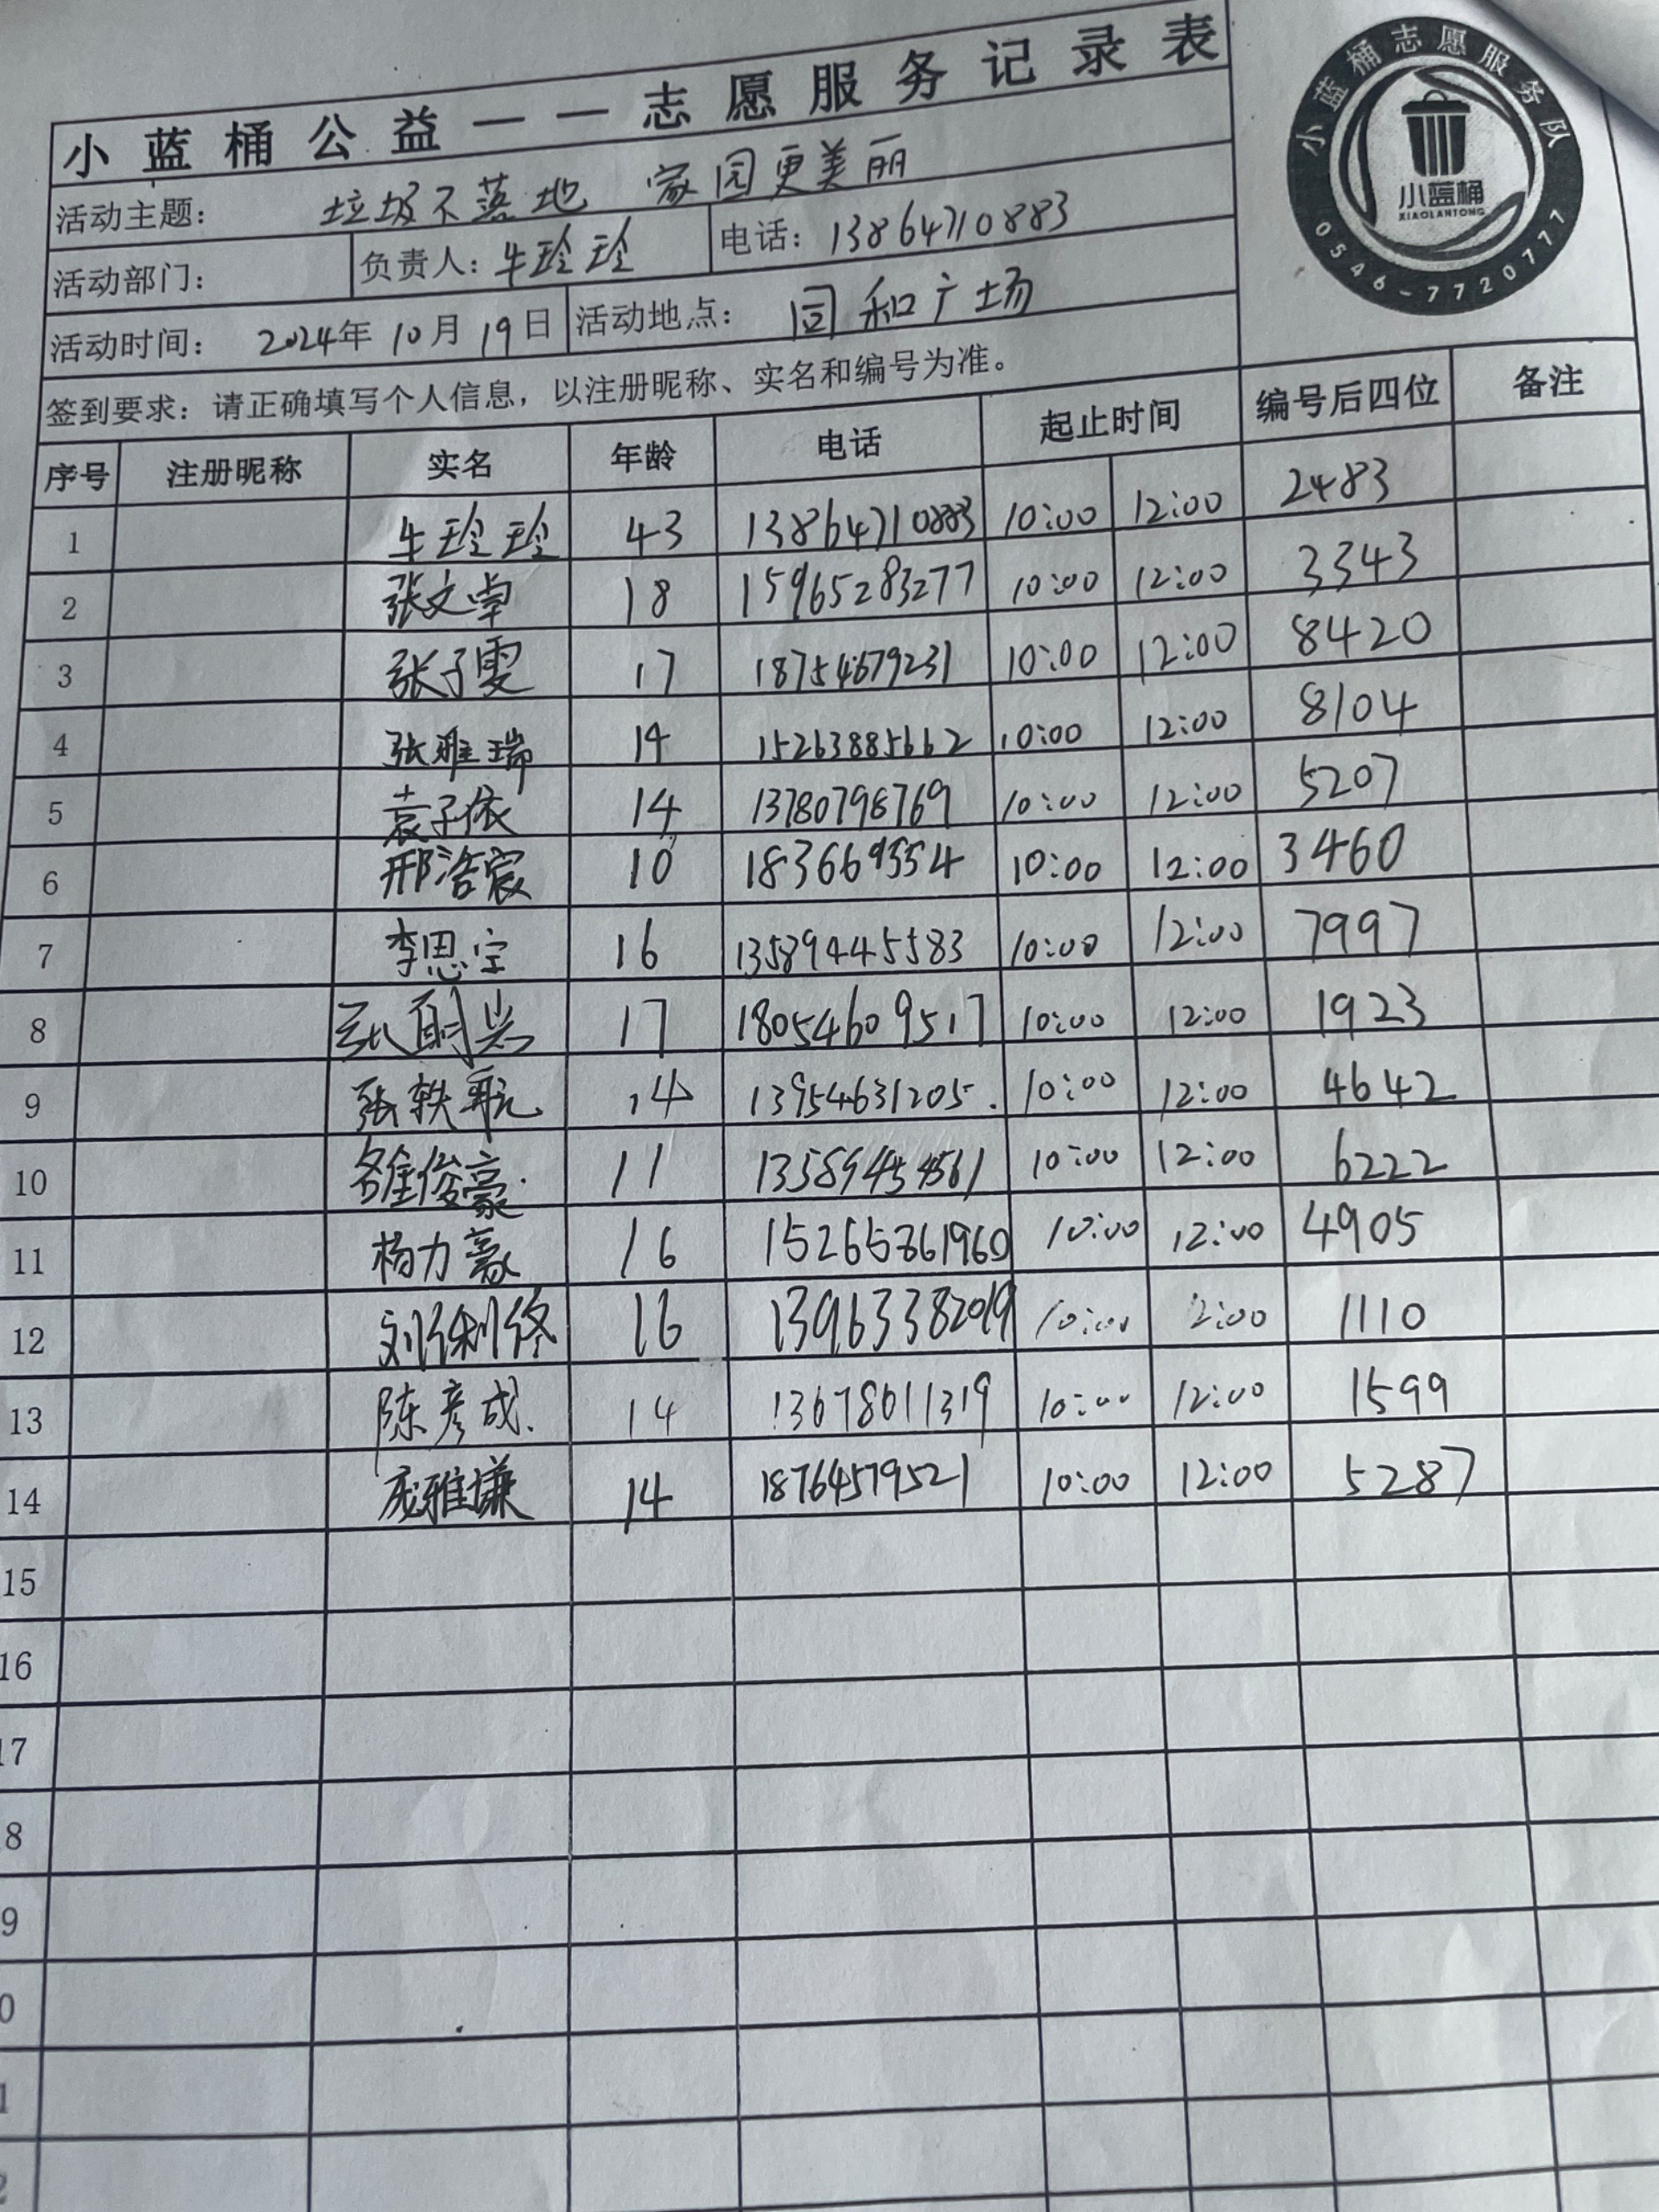 小蓝桶公益——志愿服务记录表
小蓝桶志愿服务队
小蓝桶
XIAOLANTONG
0546-7720777
活动主题： 垃圾不落地 家园更美丽
活动部门： 负责人：牛玲玲 电话：13864710883
活动时间： 2024年10月19日 活动地点： 同和广场
签到要求：请正确填写个人信息，以注册昵称、实名和编号为准。
序号 注册昵称 实名 年龄 电话 起止时间 编号后四位 备注
1 牛玲玲 43 13864710883 10:00 12:00 2483
2 张文卓 18 15965283277 10:00 12:00 3343
3 张子雯 17 18754679231 10:00 12:00 8420
4 张雅瑞 14 15263885662 10:00 12:00 8104
5 袁子依 14 13780798769 10:00 12:00 5207
6 邢浩宸 10 1836669554 10:00 12:00 3460
7 李思宝 16 13589445583 10:00 12:00 7997
8 17 18054609517 10:00 12:00 1923
9 张轶航 14 13954631205. 10:00 12:00 4642
10 俊豪 11 13589454561 10:00 12:00 6222
11 杨力豪 16 15265861960 10:00 12:00 4905
12 刘 16 13963382019 10:00 12:00 1110
13 陈彦成. 14 13678611319 10:00 12:00 1599
14 庞雅谦 14 18764579521 10:00 12:00 5287
15
16
17
8
9
0
1
2